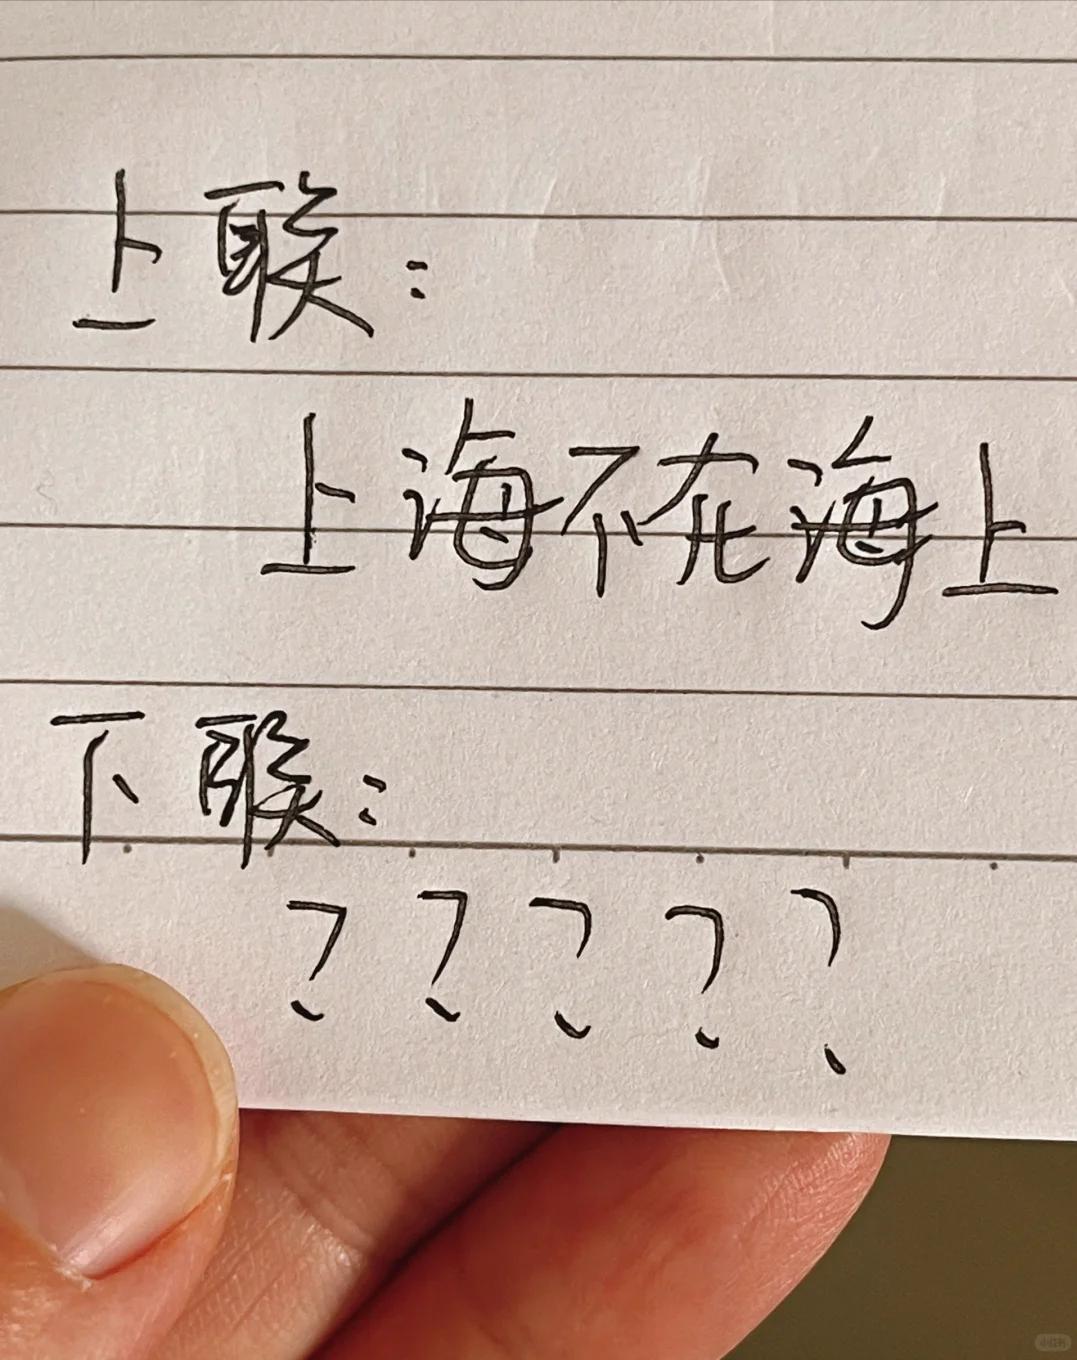 上联：
上海不在海上
下联：
？？？？？